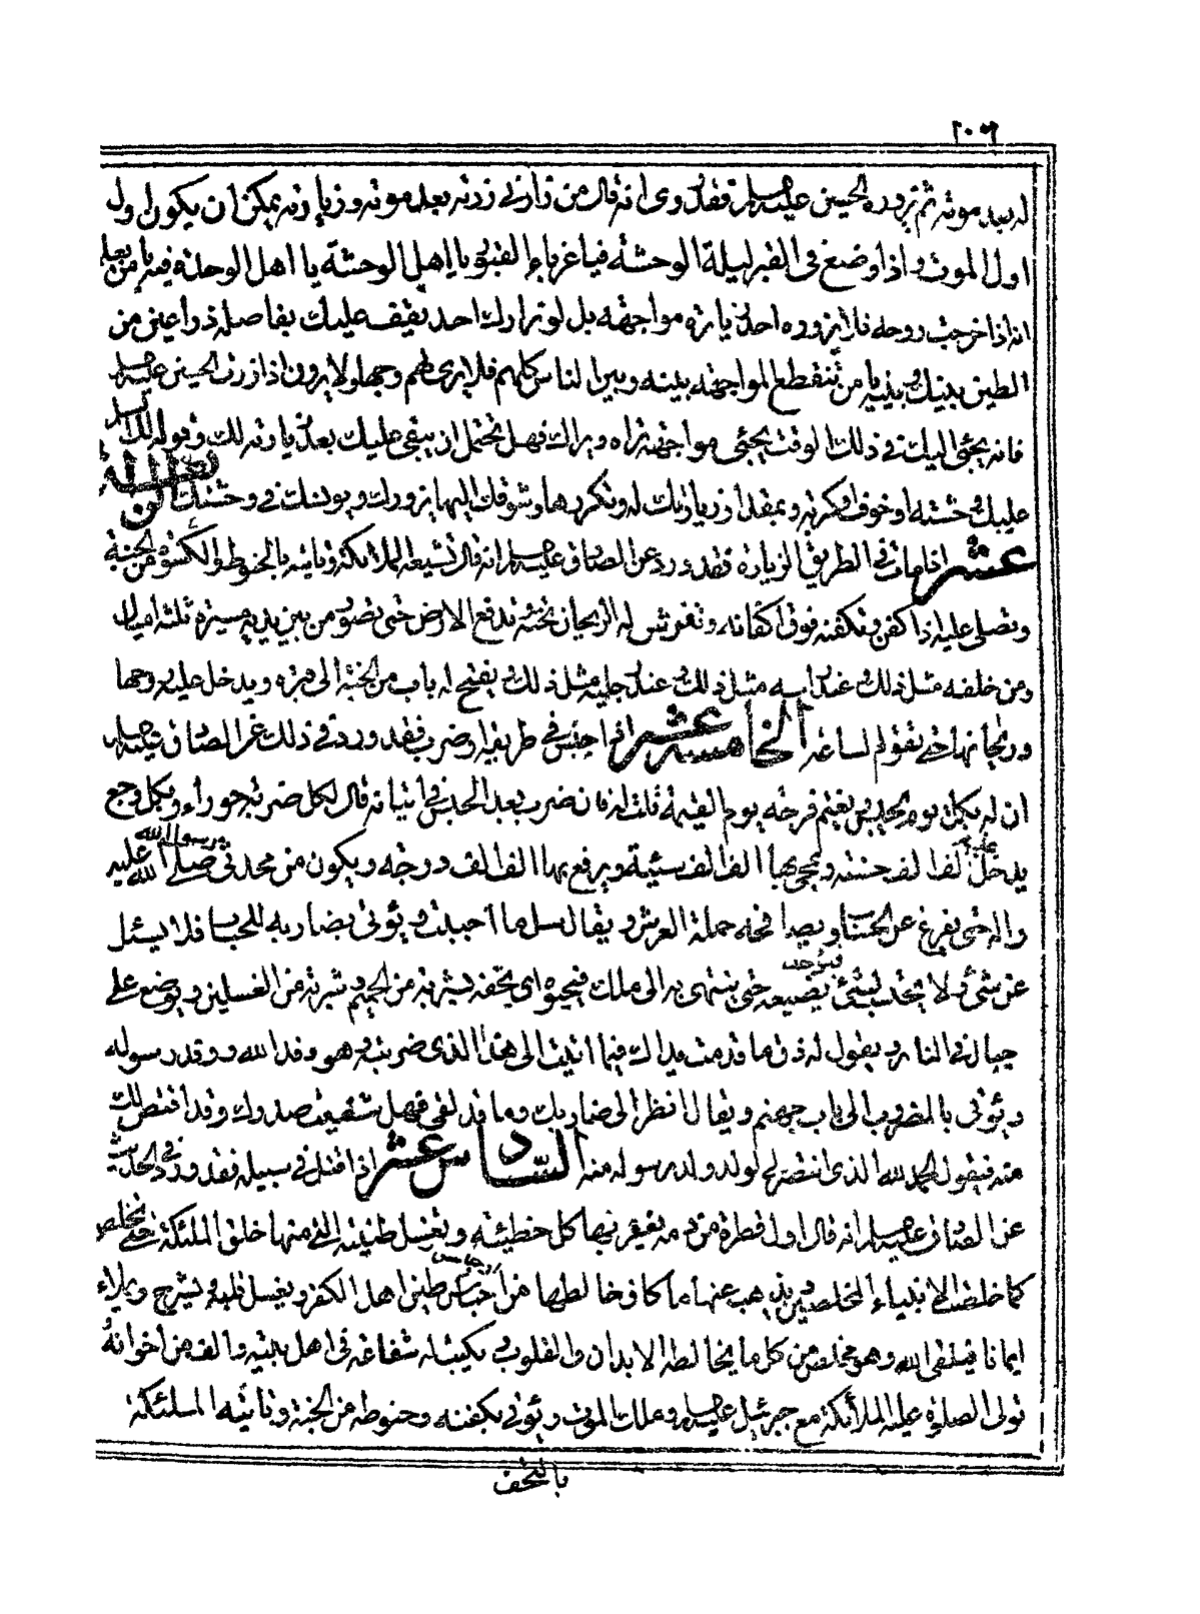 ٢٠٦
له بعد موته ثم يزوره الحسين عليه السلم فقد روى انه قال من زارنى زرته بعد موته وزيارته يمكن ان يكون اول
اول الموت واذا وضع فى القبر ليلة الوحشة فيا غرباء القبور يا اهل الوحشة يا اهل الوحدة فيه يا من يعلم
انه اذا خرجت روحه فلا يزوره احد زيارة مواجهة بل لو زارك احد يقف عليك بفاصلة ذراعين من
الطين بينك وبينه يا من تنقطع المواجهة بينه وبين الناس كلهم فلا يرى لهم وجها ولا يرون اذا زرت الحسين عليه السلم
فانه يجئ اليك فى ذلك الوقت يجئ مواجهة تراه ويراك فهل تحتمل ان يبقى عليك بعد زيارته لك وقوله لك
عليك وحشة او خوف وكربة وبمقدار زيارتك له وتكررها وشوقك اليها يزورك ويونسك فى وحشتك
عشر اذا مات فى الطريق الزيارة فقد ورد عن الصادق عليه السلم انه قال تشيعه الملائكة وياتيه بالحنوط والكسوة من الجنة
وتصلى عليه اذا كفن وتكفنه فوق اكفانه وتفرش له الريحان تحته تدفع الارض حتى تصور من بين يديه مسيرة ثلثة اميال
ومن خلفه مثل ذلك وعند راسه مثل ذلك وعند رجليه مثل ذلك ويفتح له باب من الجنة الى قبره ويدخل عليه روحها
وريحانها حتى تقوم الساعة الخامسة عشر اذا حبس فى طريقه او ضرب فقد ورد فى ذلك عن الصادق عليه السلم
ان له بكل يوم يحبس يغتم فرحة يوم القيمة قلت له فان ضرب بعد الحبس فى اتيانه قال لكل ضربة حوراء وبكل وجع
يدخل عليه الف الف حسنة ويمحى بها الف الف سيئة ويرفع بها الف الف درجة ويكون من محدثى رسول الله صلى الله عليه
واله حتى يفرغ عن الحساب ويصافحه حملة العرش ويقال سل ما احببت ويؤتى بضاربه للحساب فلا يسئل
عن شئ ولا يحتسب لشئ فيؤخذ بضبعه حتى ينتهى به الى ملك فيحبوه اى يتحفه بشربة من الحميم وشربة من الغسلين ويوضع على
جبال فى النار ويقول له ذق ما قدمت يداك فيما اتيت الى هذا الذى ضربته وهو وفد الله ووفد رسوله
ويؤتى بالمضروب الى باب جهنم ويقال انظر الى ضاربك وما قد لقى فهل شفيت صدرك وقد اقتص لك
منه فيقول الحمد لله الذى انتصر لى ولولد رسوله منه السادس عشر اذا قتل فى سبيله فقد ورد فى الحديث
عن الصادق عليه السلم انه قال اول قطرة من دمه يغفر بها كل خطيئة وتغسل طينته التى منها خلق الملئكة حتى تخلص
كما خلصت الانبياء المخلصين ويذهب عنها ما كان خالطها من اجناس طين اهل الكفر ويغسل قلبه ويشرح ويملاء
ايمانا فيلقى الله وهو مخلص من كل ما يخالطه الابدان والقلوب ويكتب له شفاعة فى اهل بيته والف من اخوانه
تولى الصلوة عليه الملائكة مع جبرئيل عليه السلم وملك الموت ويؤتى بكفنه وحنوطه من الجنة وتاتيه الملئكة
بالتحف